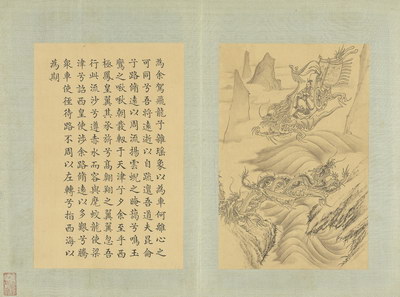 為余駕飛龍兮雜瑤象以為車何離心之
可同兮吾將遠逝以自疏邅吾道夫崑侖
兮路脩遠以周流揚雲蜺之晻藹兮鳴玉
鸞之啾啾朝發軔于天津兮夕余至乎西
極鳳皇翼其承旂兮高翱翔之翼翼忽吾
行此流沙兮遵赤水而容與麾蛟龍使梁
津兮詔西皇使涉余路脩遠以多艱兮騰
眾車使徑待路不周以左轉兮指西海以
為期